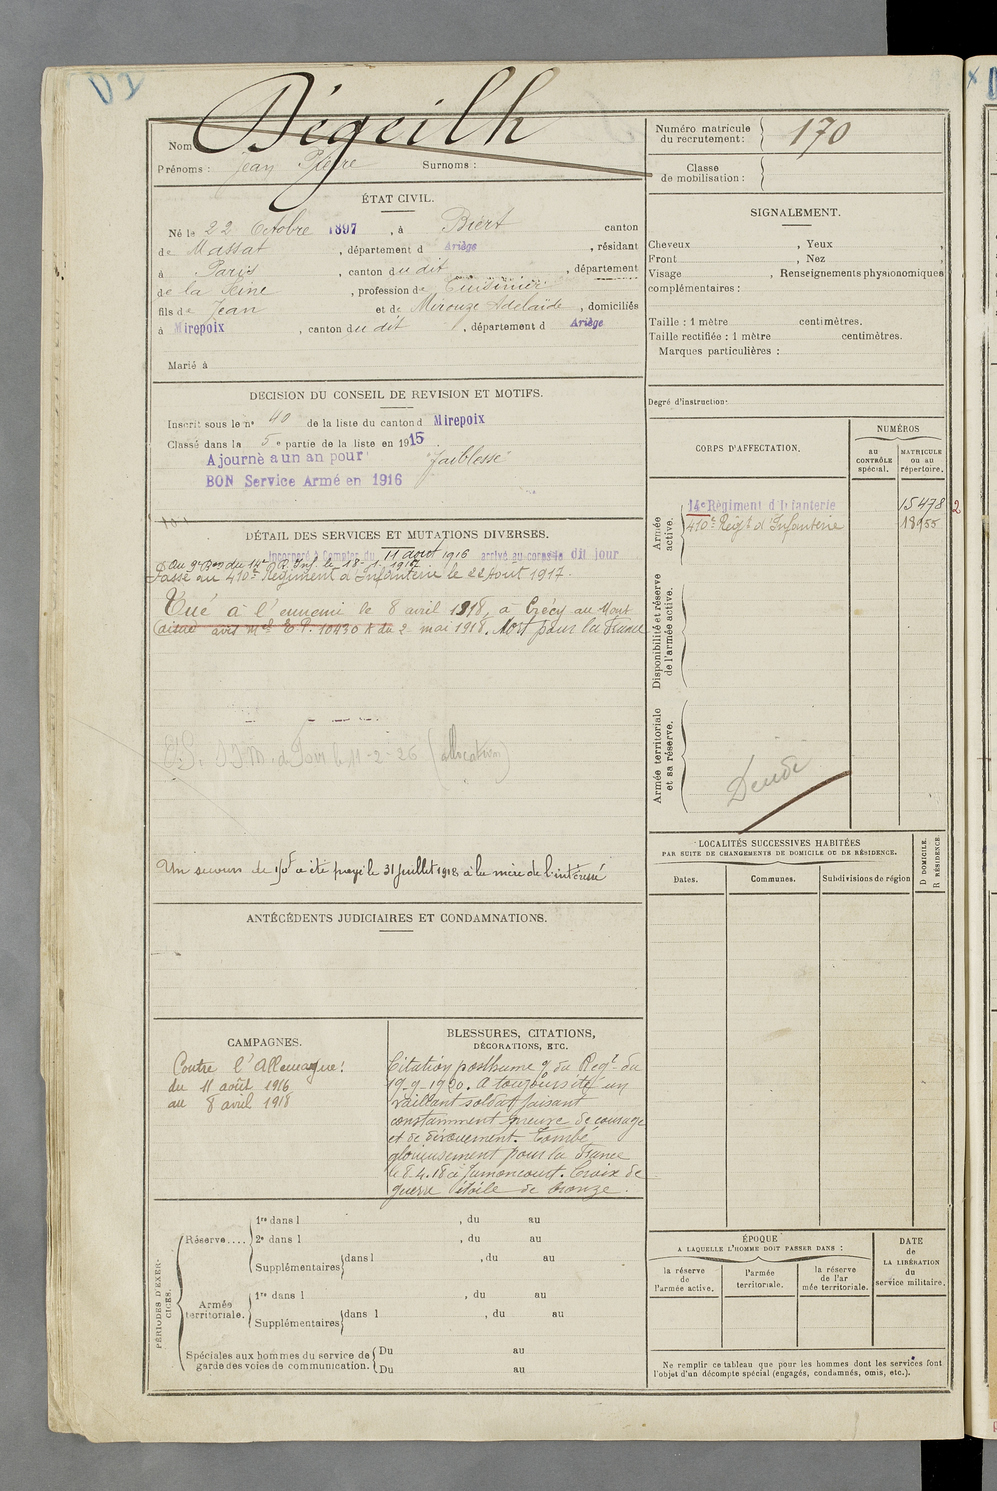 Nom Dégeilh
Prénoms : Jean Pierre Surnoms :
Numéro matricule du recrutement : 170
Classe de mobilisation :
ÉTAT CIVIL.
Né le 22 Octobre 1897, à Biert canton
de Massat, département d Ariège, résidant
à Paris, canton du dit, département
de la Seine, profession de Cuisinier
fils de Jean et de Mirouze Adelaïde, domiciliés
à Mirepoix, canton du dit, département d Ariège
Marié à
SIGNALEMENT.
Cheveux , Yeux ,
Front , Nez ,
Visage , Renseignements physionomiques
complémentaires :
Taille : 1 mètre centimètres.
Taille rectifiée : 1 mètre centimètres.
Marques particulières :
Degré d'instruction.
DECISION DU CONSEIL DE REVISION ET MOTIFS.
Inscrit sous le n° 40 de la liste du canton d Mirepoix
Classé dans la 5e partie de la liste en 1915.
Ajourné a un an pour "faiblesse"
BON Service Armé en 1916
CORPS D'AFFECTATION.
NUMÉROS
au CONTRÔLE spécial.
MATRICULE ou au répertoire.
Armée active.
14e Régiment d'Infanterie 15478 2
410e Régt d'Infanterie 18155
Disponibilité et réserve de l'armée active.
Armée territoriale et sa réserve.
DÉTAIL DES SERVICES ET MUTATIONS DIVERSES.
Incorporé à Compter du 11 août 1916 arrivé au corps le dit jour
Au 9e Bon du 14e R. Inf. le 18-1-1917
Passé au 410e Régiment d'Infanterie le 22 Août 1917.
Tué à l'ennemi le 8 avril 1918, à Crécy au Mont
(aisne) avis mel E.P. 10430 K du 2 mai 1918. Mort pour la France
du 11-2-26 (allocation)
Un secours de 150f a été payé le 31 Juillet 1918 à la mère de l'intéressé
LOCALITÉS SUCCESSIVES HABITÉES
PAR SUITE DE CHANGEMENTS DE DOMICILE OU DE RÉSIDENCE.
Dates. Communes. Subdivisions de région
D DOMICILE.
R RÉSIDENCE.
ANTÉCÉDENTS JUDICIAIRES ET CONDAMNATIONS.
CAMPAGNES.
Contre l'Allemagne :
du 11 août 1916
au 8 avril 1918
BLESSURES, CITATIONS,
DÉCORATIONS, ETC.
Citation posthume O. du Régt du
19-9-1920. A toujours été un
vaillant soldat faisant
constamment preuve de courage
et de dévouement. Tombé
glorieusement pour la France
le 8.4.18 à Jumencourt. Croix de
guerre étoile de bronze.
PÉRIODES D'EXERCICES.
Réserve....
1re dans l , du au
2e dans l , du au
Supplémentaires dans l , du au
Armée territoriale.
1re dans l , du au
Supplémentaires dans l , du au
Spéciales aux hommes du service de garde des voies de communication.
Du au
Du au
ÉPOQUE
A LAQUELLE L'HOMME DOIT PASSER DANS :
la réserve de l'armée active.
l'armée territoriale.
la réserve de l'armée territoriale.
DATE
de
LA LIBÉRATION
du
service militaire.
Ne remplir ce tableau que pour les hommes dont les services font
l'objet d'un décompte spécial (engagés, condamnés, omis, etc.).